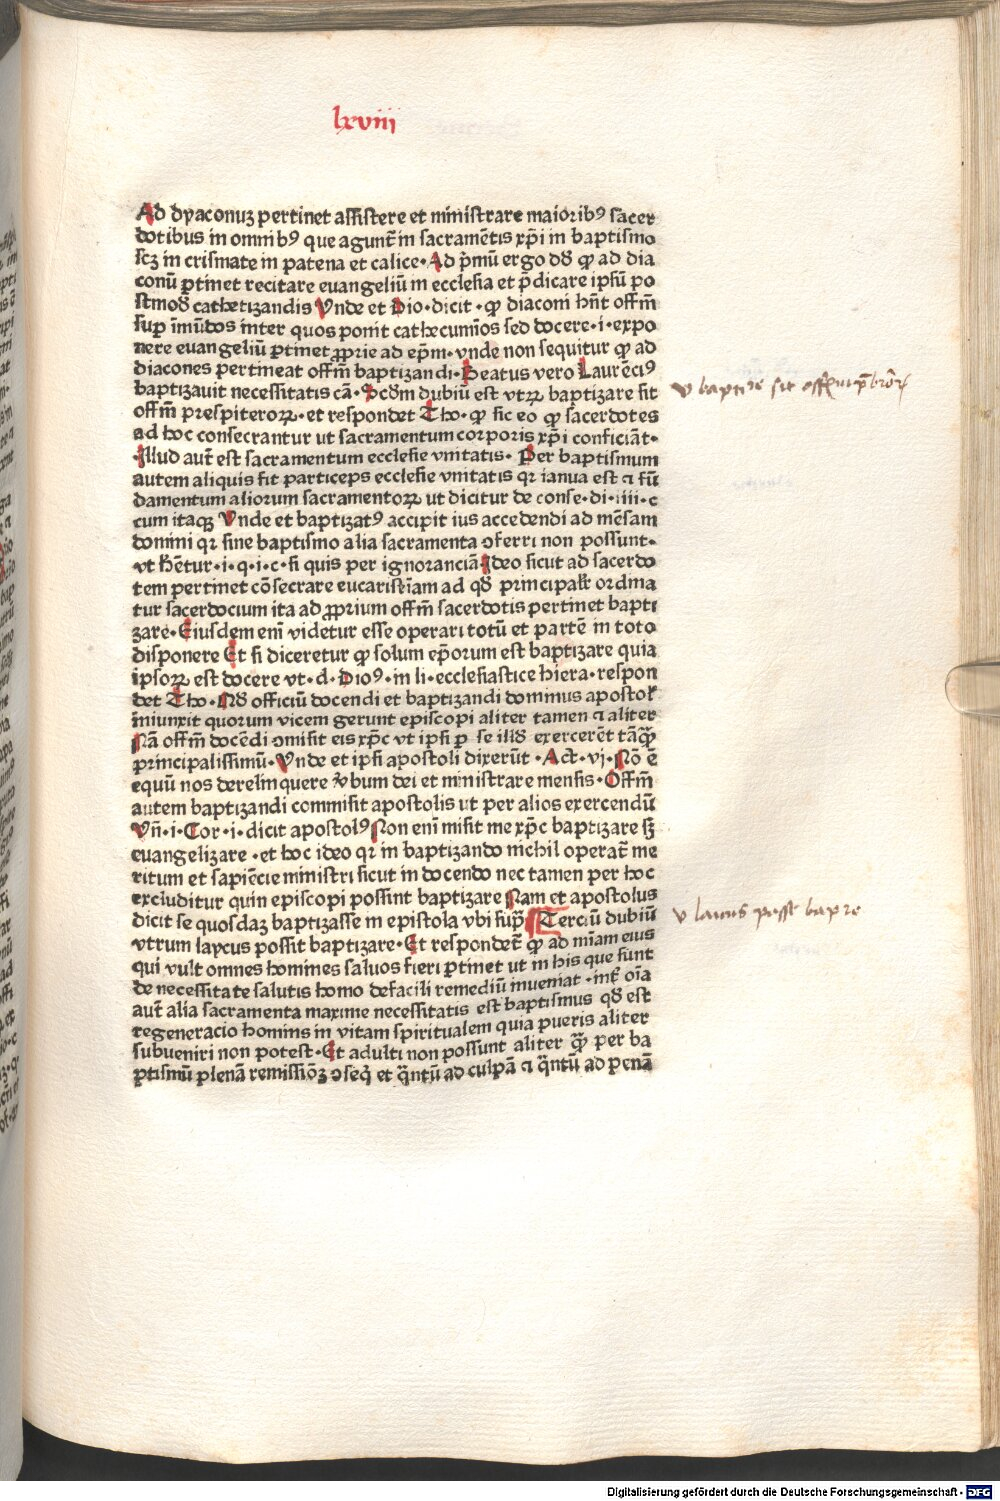 lxviii
Ad dyaconuʒ pertinet aſſiſtere et miniſtrare maiorib⁹ ſacer
dotibus in omnib⁹ que agunt̄ in ſacramētis xp̄i in baptiſmo
ſcʒ in criſmate in patena et calice · Ad p̄mū ergo dōꝫ ꝙ ad dia
conū ꝑtinet recitare euangeliū in eccleſia et p̄dicare ipſū po
ſtmoꝺ cathetizandis Vnde et Dio · dicit · ꝙ diaconi hn̄t offm̄
ſuꝑ īmūdos inter quos ponit cathecumīos ſed docere · i · expo
nere euangeliū ꝑtinet ꝓprie ad ep̄m · vnde non ſequitur ꝙ ad
diacones pertineat offm̄ baptizandi · Beatus vero Laurēci⁹
baptizauit neceſſitatis cā · Scd̄m dubiū est vtꝝ baptizare ſit
offm̄ preſpiteroꝝ · et reſpondet Tho · ꝙ ſic eo ꝙ ſacerdotes
ad hoc conſecrantur ut ſacramentum corporis xp̄i conficiāt ·
Illud aut̄ est ſacramentum eccleſie vnitatis · Per baptiſmum
autem aliquis fit particeps eccleſie vnitatis qr ianua est ⁊ fū
damentum aliorum ſacramentoꝝ ut dicitur de conſe · di · iiii · c
cum itaqꝫ Vnde et baptizat⁹ accipit ius accedendi ad mēſam
domini qr ſine baptiſmo alia ſacramenta ↄferri non poſſunt ·
vt h̄etur · i · q · i · c · ſi quis per ignoranciā Ideo ſicut ad ſacerdo
tem pertinet cōſecrare eucariſtiam ad qd̄ principalr̄ ordina
tur ſacerdocium ita ad ꝓprium offm̄ ſacerdotis pertinet bapti
zare · Eiusdem eni videtur esse operari totū et partē in toto
disponere Et ſi diceretur ꝙ ſolum ep̄orum est baptizare quia
ipſoꝝ est docere vt · d · Dio⁹ · in li · eccleſiaſtice hiera · reſpon
det Tho · Nā officiū docendi et baptizandi dominus apoſtol̄
iniunxit quorum vicem gerunt epiſcopi aliter tamen ⁊ aliter
Nā offm̄ docēdi ↄmiſit eis xp̄c vt ipſi ꝑ ſe illd̄ exercerēt tāꝙ̄
principaliſſimū · Vnde et ipſi apoſtoli dixerūt · Act · vj · Nō ē
equū nos derelinquere v̄bum dei et miniſtrare menſis · Offm̄
autem baptizandi commiſit apoſtolis ut per alios exercendū
Vn̄ · i · Cor · i · dicit apoſtol⁹ Non eni miſit me xp̄c baptizare ſꝫ
euangelizare · et hoc ideo qr in baptizando nichil operat̄ me
ritum et ſapiēcie miniſtri ſicut in docendo nec tamen per hoc
excluditur quin epiſcopi poſſint baptizare Nam et apoſtolus
dicit ſe quosdaʒ baptizaſſe in epiſtola vbi ſup̄ Terciū dubiū
vtrum laycus poſſit baptizare · Et reſpondet̄ ꝙ ad mīam eius
qui vult omnes homines ſaluos fieri ꝑtinet ut in his que ſunt
de neceſſitate ſalutis homo defacili remediū inueniat · int̄ oīa
aut̄ alia ſacramenta maxime neceſſitatis est baptiſmus qd̄ est
regeneracio hominis in vitam ſpiritualem quia pueris aliter
ſubueniri non potest · Et adulti non poſſunt aliter ꝙ̄ per ba
ptiſmū plenā remiſſiōʒ ↄſeq̄ et q̄ntū ad culpā ⁊ q̄ntū ad penā
v laicus posset bap re
Digitalisierung gefördert durch die Deutsche Forschungsgemeinschaft - DFG